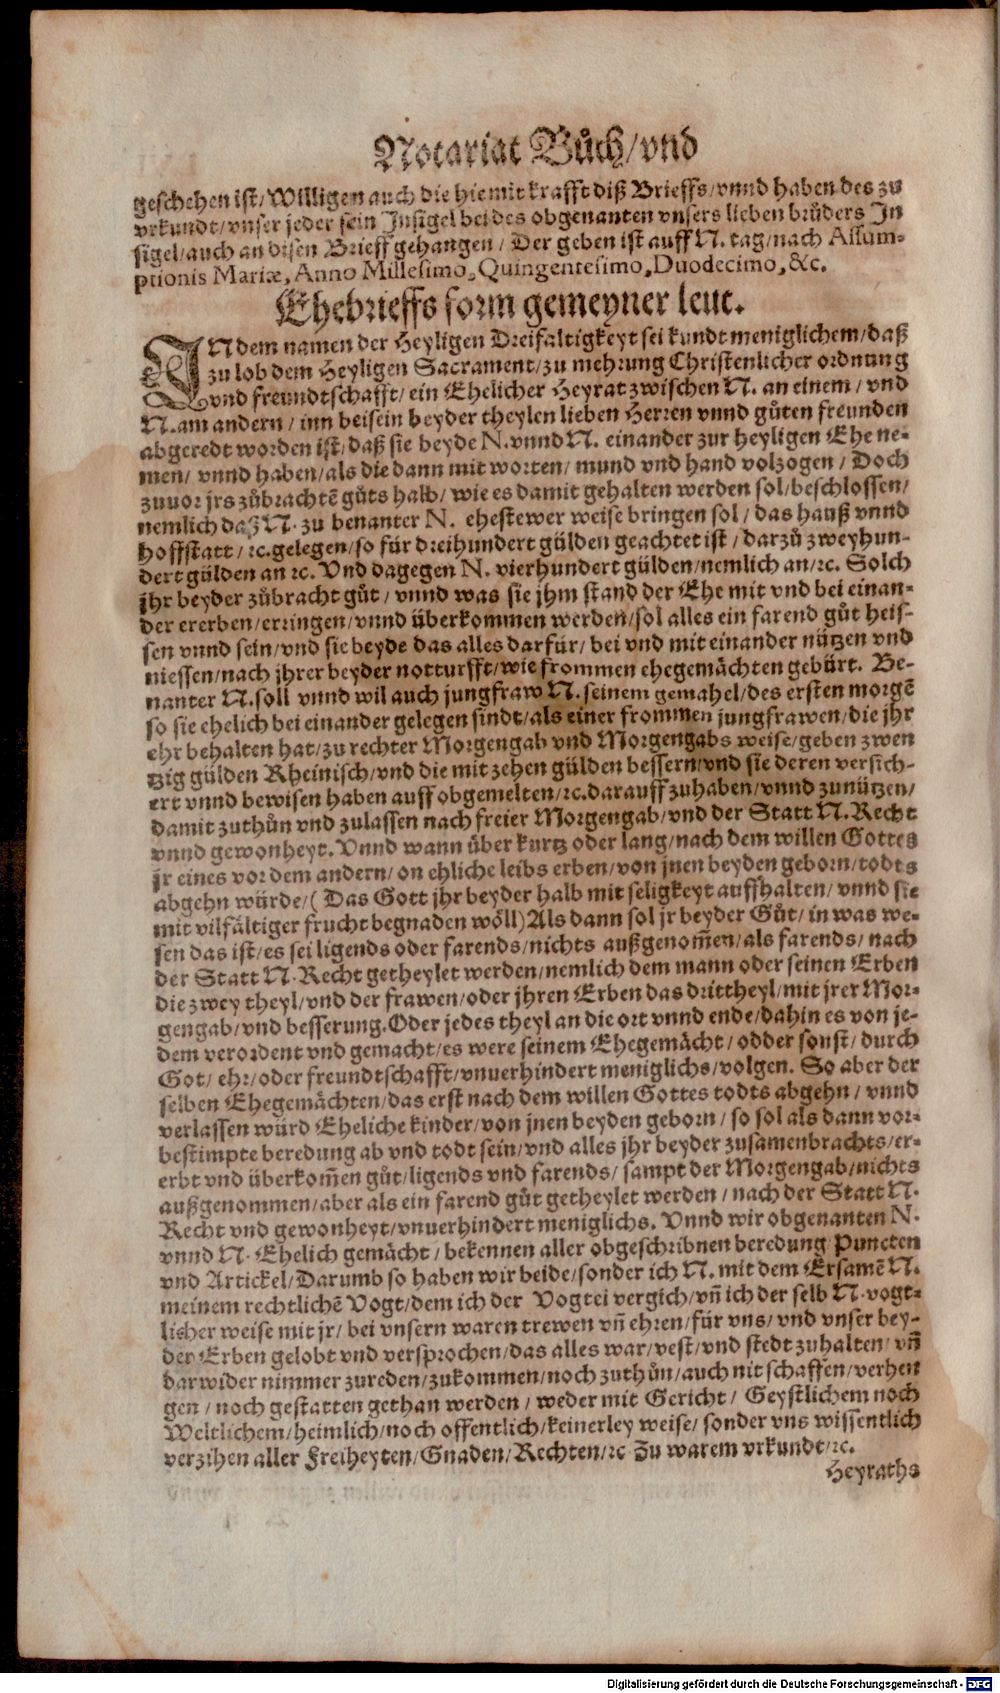 Notariat Bůch/vnd
geschehen ist/Willigen auch die hiemit krafft diß Brieffs/vnnd haben des zu
vrkundt/vnser jeder sein Jnsigel bei des obgenanten vnsers lieben brůders Jn
sigel/auch an disen Brieff gehangen/ Der geben ist auff N. tag/nach Assum-
ptionis Mariæ, Anno Millesimo, Quingentesimo, Duodecimo, &c.
Ehebrieffs form gemeyner leut.
JN dem namen der Heyligen Dreifaltigkeyt sei kundt meniglichem/daß
zu lob dem Heyligen Sacrament/zu mehrung Christenlicher ordnung
vnd freundtschafft/ ein Ehelicher Heyrat zwischen N. an einem/ vnd
N. am andern/ inn beisein beyder theylen lieben Herren vnnd gůten freunden
abgeredt worden ist/ daß sie beyde N. vnnd N. einander zur heyligen Ehe ne-
men/ vnnd haben/als die dann mit worten/ mund vnd hand volzogen/ Doch
zuuor jrs zůbrachtē gůts halb/ wie es damit gehalten werden sol/beschlossen/
nemlich daß N. zu benanter N. ehestewer weise bringen sol/ das hauß vnnd
hoffstatt/ ꝛc. gelegen/so für dreihundert gülden geachtet ist/ darzů zweyhun-
dert gülden an ꝛc. Vnd dagegen N. vierhundert gülden/nemlich an/ꝛc. Solch
jhr beyder zůbracht gůt/ vnnd was sie jhm stand der Ehe mit vnd bei einan-
der ererben/erringen/vnnd überkommen werden/sol alles ein farend gůt heis-
sen vnnd sein/vnd sie beyde das alles darfür/ bei vnd mit einander nützen vnd
niessen/nach jhrer beyder notturfft/wie frommen ehegemächten gebürt. Be-
nanter N. soll vnnd wil auch jungfraw N. seinem gemahel/des ersten morgē
so sie ehelich bei einander gelegen sindt/als einer frommen jungfrawen/die jhr
ehr behalten hat/zu rechter Morgengab vnd Morgengabs weise/geben zwen
tzig gülden Rheinisch/vnd die mit zehen gülden bessern/vnd sie deren versich-
ert vnnd bewisen haben auff obgemelten/ꝛc. darauff zuhaben/vnnd zunützen/
damit zuthůn vnd zulassen nach freier Morgengab/vnd der Statt N. Recht
vnnd gewonheyt. Vnnd wann über kurtz oder lang/nach dem willen Gottes
jr eines vor dem andern/on ehliche leibs erben/von jnen beyden geborn/todts
abgehn würde/( Das Gott jhr beyder halb mit seligkeyt auffhalten/ vnnd sie
mit vilfältiger frucht begnaden wöll) Als dann sol jr beyder Gůt/ in was we-
sen das ist/es sei ligends oder farends/nichts außgenom̄en/als farends/ nach
der Statt N. Recht getheylet werden/nemlich dem mann oder seinen Erben
die zwey theyl/vnd der frawen/oder jhren Erben das drittheyl/mit jrer Mor-
gengab/vnd besserung. Oder jedes theyl an die ort vnnd ende/dahin es von je-
dem verordent vnd gemacht/es were seinem Ehegemächt/ odder sonst/ durch
Got/ ehr/oder freundtschafft/vnuerhindert meniglichs/volgen. So aber der
selben Ehegemächten/das erst nach dem willen Gottes todts abgehn/ vnnd
verlassen würd Eheliche kinder/von jnen beyden geborn/ so sol als dann vor-
bestimpte beredung ab vnd todt sein/vnd alles jhr beyder zusamenbrachts/er-
erbt vnd überkom̄en gůt/ligends vnd farends/ sampt der Morgengab/nichts
außgenommen/aber als ein farend gůt getheylet werden/ nach der Statt N.
Recht vnd gewonheyt/vnuerhindert meniglichs. Vnnd wir obgenanten N.
vnnd N. Ehelich gemächt/ bekennen aller obgeschribnen beredung Puncten
vnd Artickel/Darumb so haben wir beide/sonder ich N. mit dem Ersamē N.
meinem rechtlichē Vogt/dem ich der Vogtei vergich/vn̄ ich der selb N. vogt-
licher weise mit jr/ bei vnsern waren trewen vn̄ ehren/für vns/ vnd vnser bey-
der Erben gelobt vnd versprochen/das alles war/vest/vnd stedt zuhalten/ vn̄
darwider nimmer zureden/zukommen/noch zuthůn/auch nit schaffen/verhen
gen/ noch gestatten gethan werden/ weder mit Gericht/ Geystlichem noch
Weltlichem/heimlich/noch offentlich/keinerley weise/ sonder vns wissentlich
verzihen aller Freiheyten/Gnaden/Rechten/ꝛc Zu warem vrkundt/ꝛc.
Heyraths
Digitalisierung gefördert durch die Deutsche Forschungsgemeinschaft - DFG